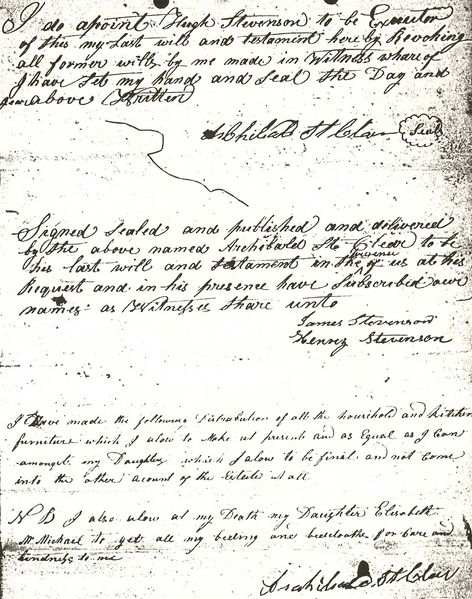 I do apoint Hugh Stevenson to be Executor
of this my last will and testament here by Revoking
all former wills by me made in Witness whare of
I have Set my hand and Seal the Day and
year above Written
Archibald St Clair Seal
Signed Sealed and published and delivered
by the above named Archibald St Clear to be
his last will and testament in the presence of us at his
Request and in his presence have Subscribed our
names as Witnesses thare unto
James Stevenson
Henrey Stevenson
I Have made the following Distrabution of all the household and kitchen
furniture which I alow to Make at present and as Equal as I Can
amongst my Daughters which I alow to be final and not Come
into the other acount of the Estate at all
N B I also alow at my Death my Daughter Elisabeth
Mc Michael to get all my beding and bedcloaths for Care and
kindness to me
Archibald St Clair